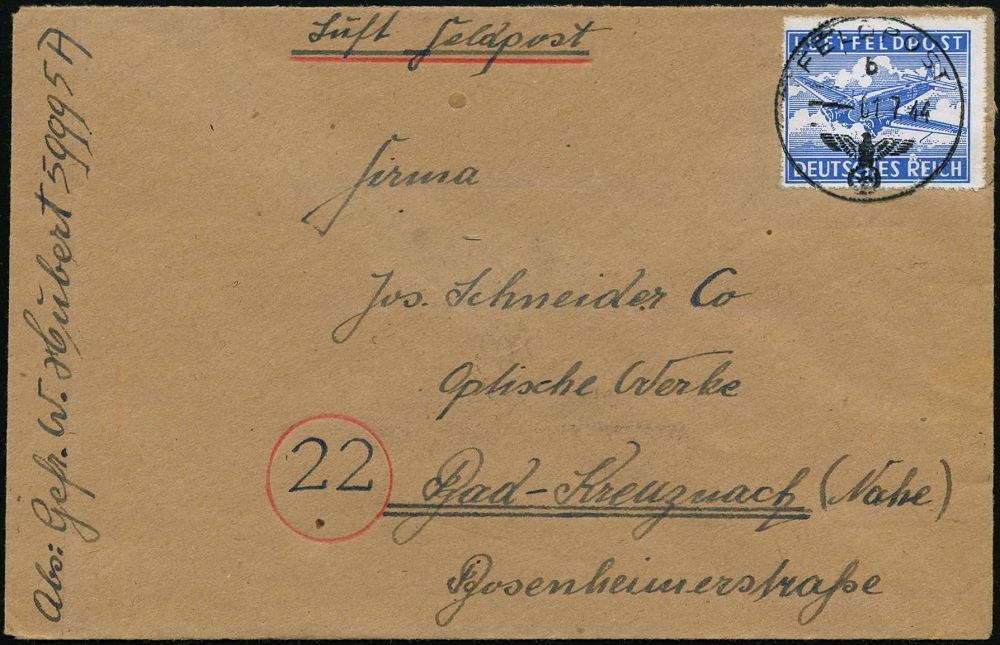 Luft Feldpost
LUFTFELDPOST
DEUTSCHES REICH
FELDPOST
b
01.7.44
Firma
Jos. Schneider Co
Optische Werke
22
Bad-Kreuznach (Nahe)
Bosenheimerstraße
Abs: Gefr. W. Hubert 59995 A